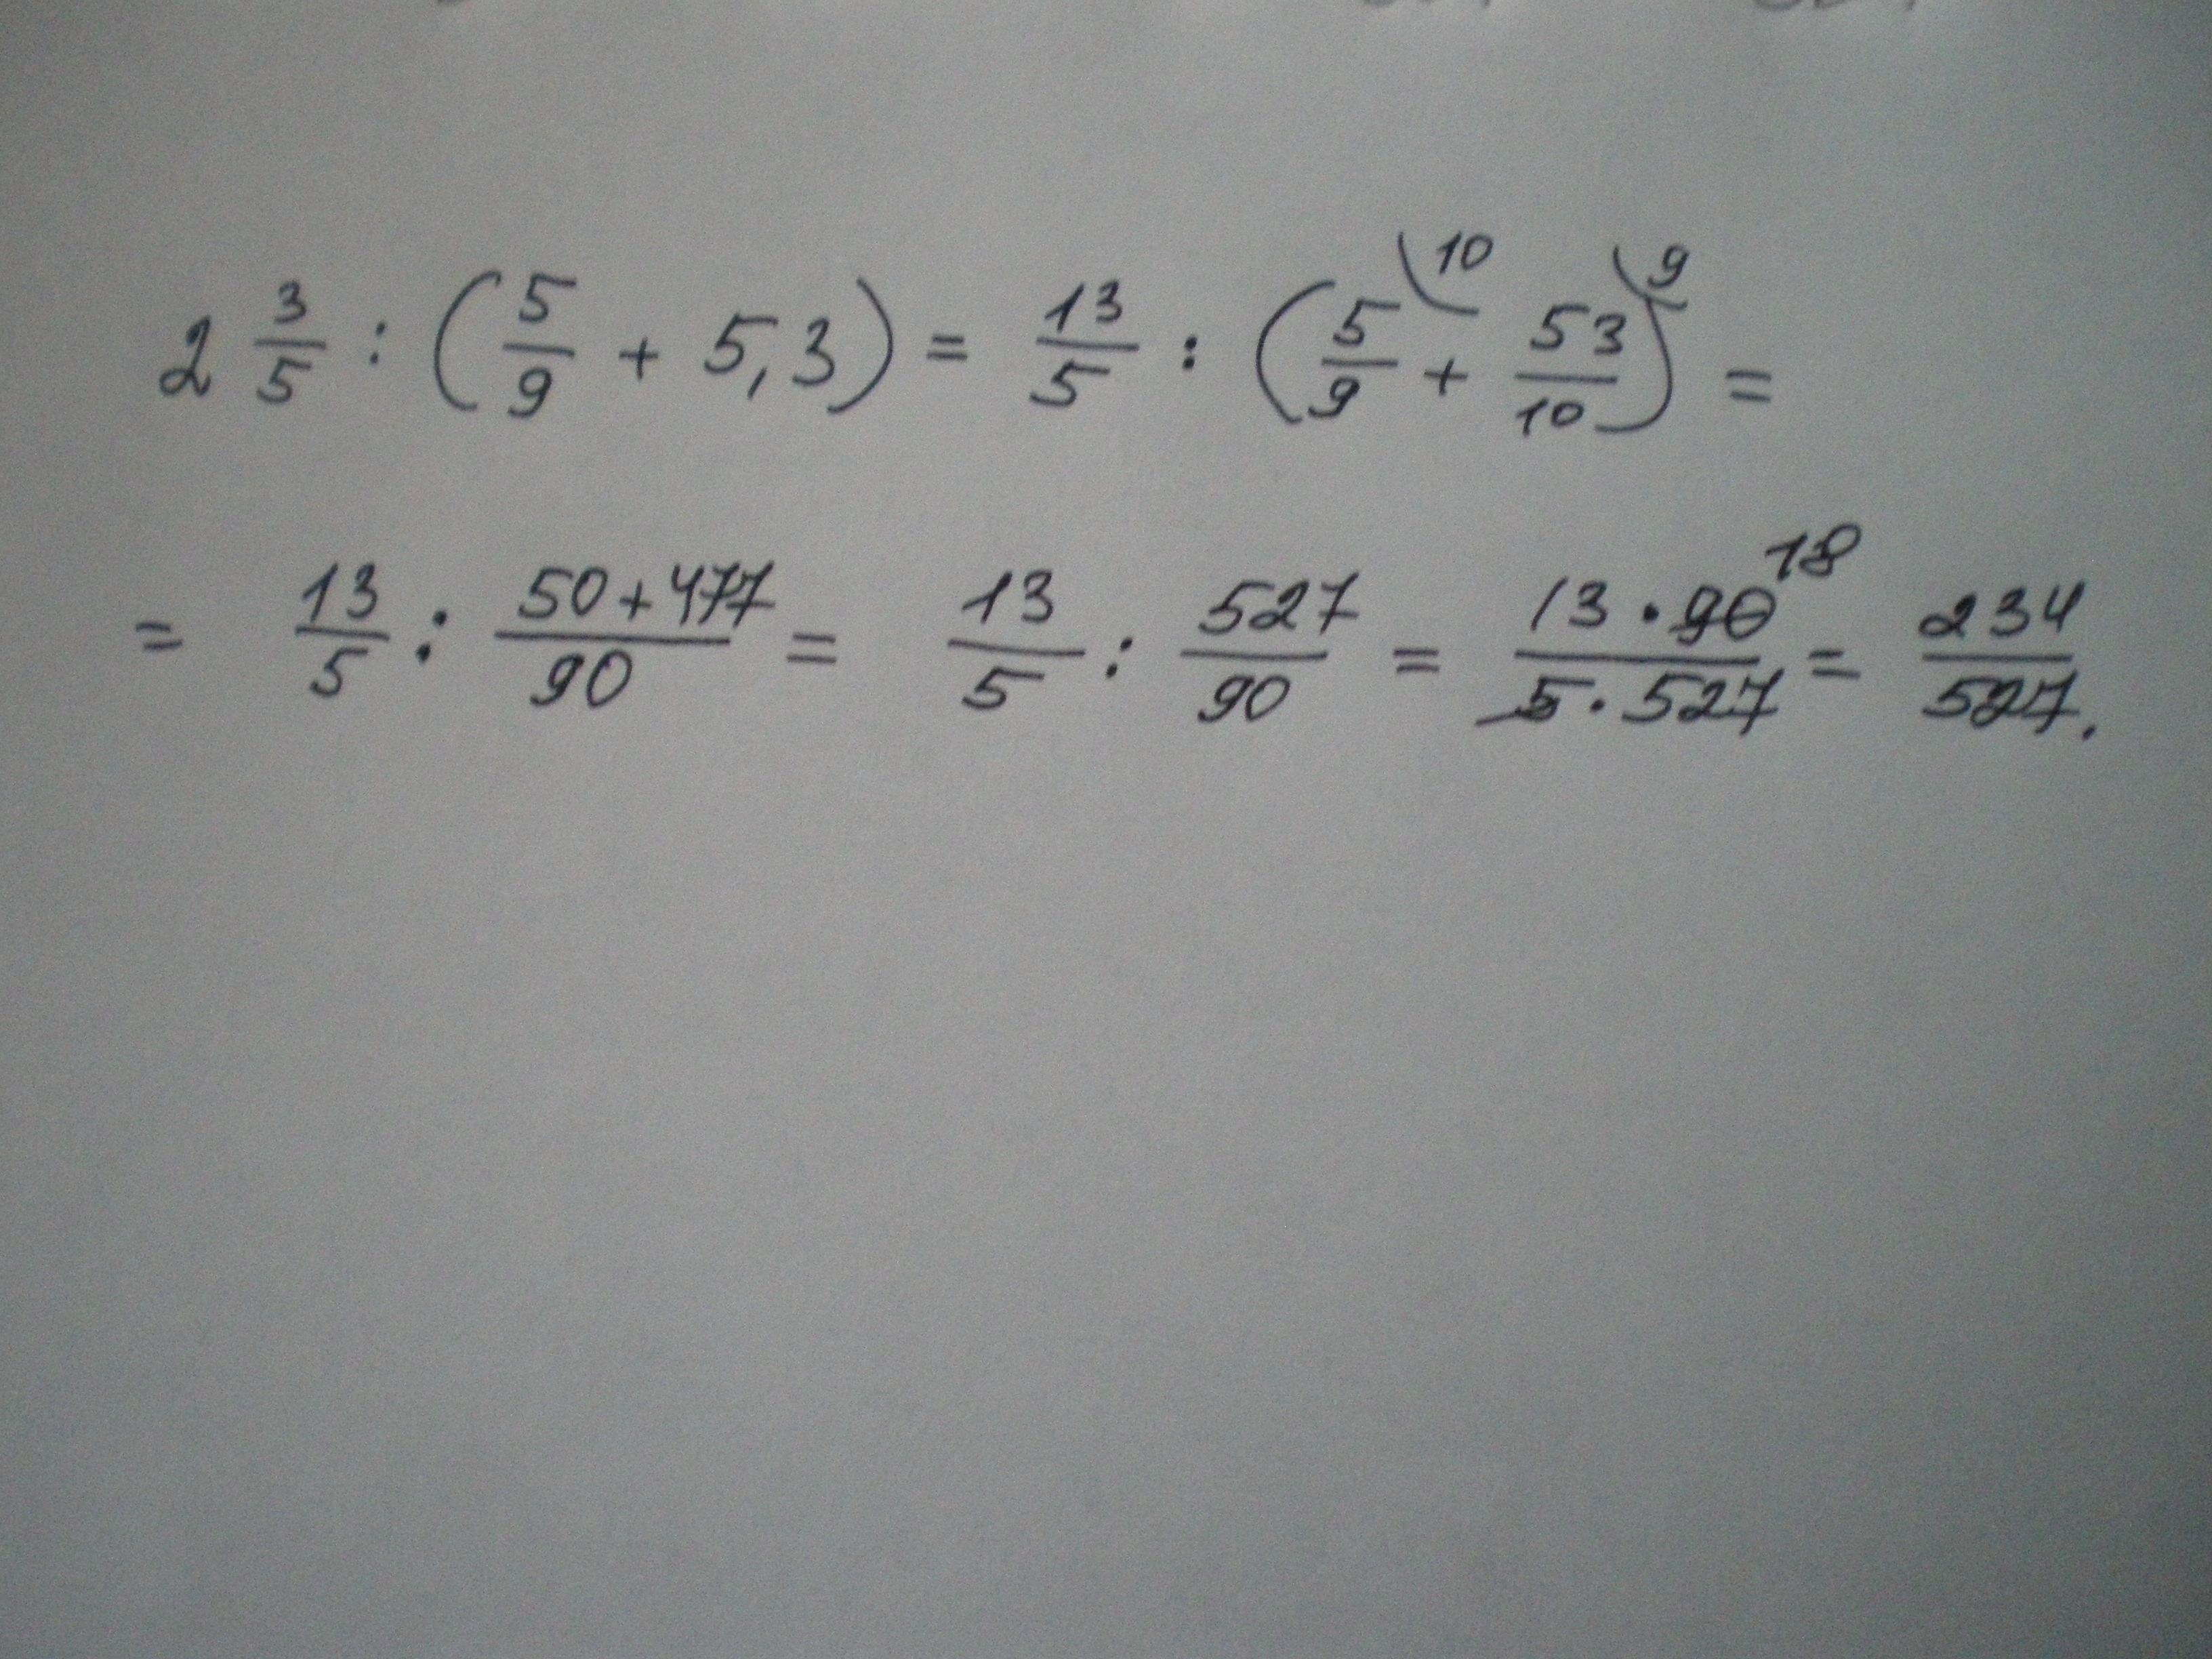 2 3/5 : (5/9 + 5,3) = 13/5 : (5/9 \10 + 53/10 \9) =
= 13/5 : (50+477)/90 = 13/5 : 527/90 = (13·90 18)/(5·527) = 234/527.